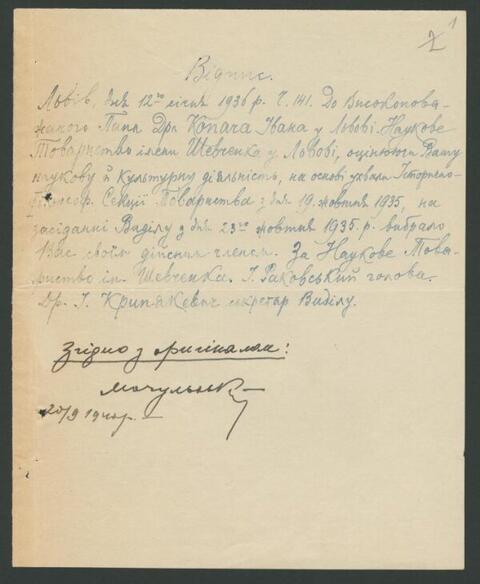 1
2
Відпис.
Львів, дня 12го січня 1936 р. Ч. 141. До Високопова-
жаного Пана Дра Копача Івана у Львові. Наукове
Товариство імени Шевченка у Львові, оцінюючи Вашу
наукову й культурну діяльність, на основі ухвали Історично-
фільософ. Секції Товариства з дня 19. жовтня 1935, на
засіданні Виділу з дня 23го жовтня 1935. р. вибрало
Вас своїм дійсним членом. За Наукове Това-
риство ім. Шевченка. І. Раковський голова.
Др. І. Крипякевич секретар Виділу.
Згідно з оригіналом:
Мочульськ
20/9 1940 р.